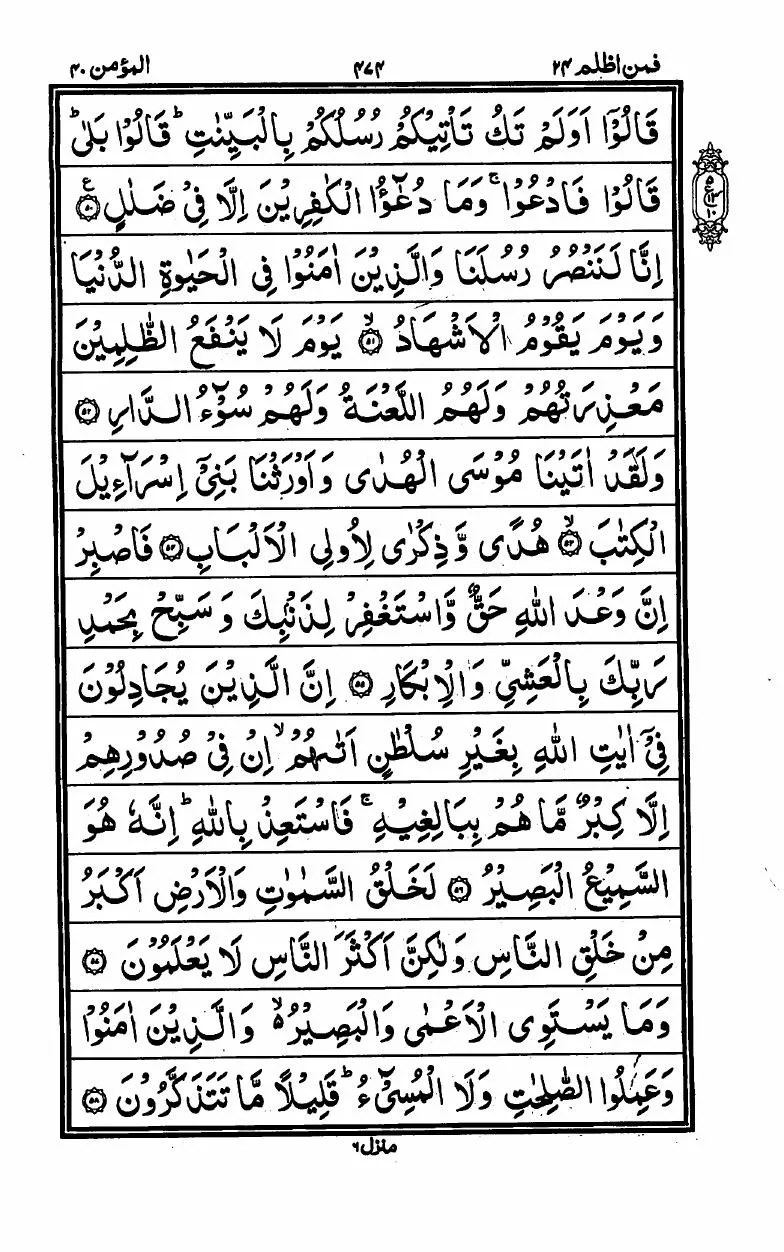 فمن اظلم ۲۴ ۴۷۴ المؤمن ۴۰
قَالُوْۤا اَوَلَمْ تَكُ تَاْتِيْكُمْ رُسُلُكُمْ بِالْبَيِّنٰتِ ؕ قَالُوْا بَلٰى ؕ
قَالُوْا فَادْعُوْا ۚ وَمَا دُعٰٓؤُا الْكٰفِرِيْنَ اِلَّا فِيْ ضَلٰلٍ ۟۠ ۵۰
اِنَّا لَنَنْصُرُ رُسُلَنَا وَالَّذِيْنَ اٰمَنُوْا فِي الْحَيٰوةِ الدُّنْيَا
وَيَوْمَ يَقُوْمُ الْاَشْهَادُ ۙ۵۱ يَوْمَ لَا يَنْفَعُ الظّٰلِمِيْنَ
مَعْذِرَتُهُمْ وَلَهُمُ اللَّعْنَةُ وَلَهُمْ سُوْٓءُ الدَّارِ ۵۲
وَلَقَدْ اٰتَيْنَا مُوْسَى الْهُدٰى وَاَوْرَثْنَا بَنِيْۤ اِسْرَآءِيْلَ
الْكِتٰبَ ۙ۵۳ هُدًى وَّذِكْرٰى لِاُولِي الْاَلْبَابِ ۵۴ فَاصْبِرْ
اِنَّ وَعْدَ اللّٰهِ حَقٌّ وَّاسْتَغْفِرْ لِذَنْۢبِكَ وَسَبِّحْ بِحَمْدِ
رَبِّكَ بِالْعَشِيِّ وَالْاِبْكَارِ ۵۵ اِنَّ الَّذِيْنَ يُجَادِلُوْنَ
فِيْۤ اٰيٰتِ اللّٰهِ بِغَيْرِ سُلْطٰنٍ اَتٰىهُمْ ۙ اِنْ فِيْ صُدُوْرِهِمْ
اِلَّا كِبْرٌ مَّا هُمْ بِبَالِغِيْهِ ۚ فَاسْتَعِذْ بِاللّٰهِ ؕ اِنَّهٗ هُوَ
السَّمِيْعُ الْبَصِيْرُ ۵۶ لَخَلْقُ السَّمٰوٰتِ وَالْاَرْضِ اَكْبَرُ
مِنْ خَلْقِ النَّاسِ وَلٰكِنَّ اَكْثَرَ النَّاسِ لَا يَعْلَمُوْنَ ۵۷
وَمَا يَسْتَوِي الْاَعْمٰى وَالْبَصِيْرُ ۙ۬ وَالَّذِيْنَ اٰمَنُوْا
وَعَمِلُوا الصّٰلِحٰتِ وَلَا الْمُسِيْٓءُ ؕ قَلِيْلًا مَّا تَتَذَكَّرُوْنَ ۵۸
منزل ۶